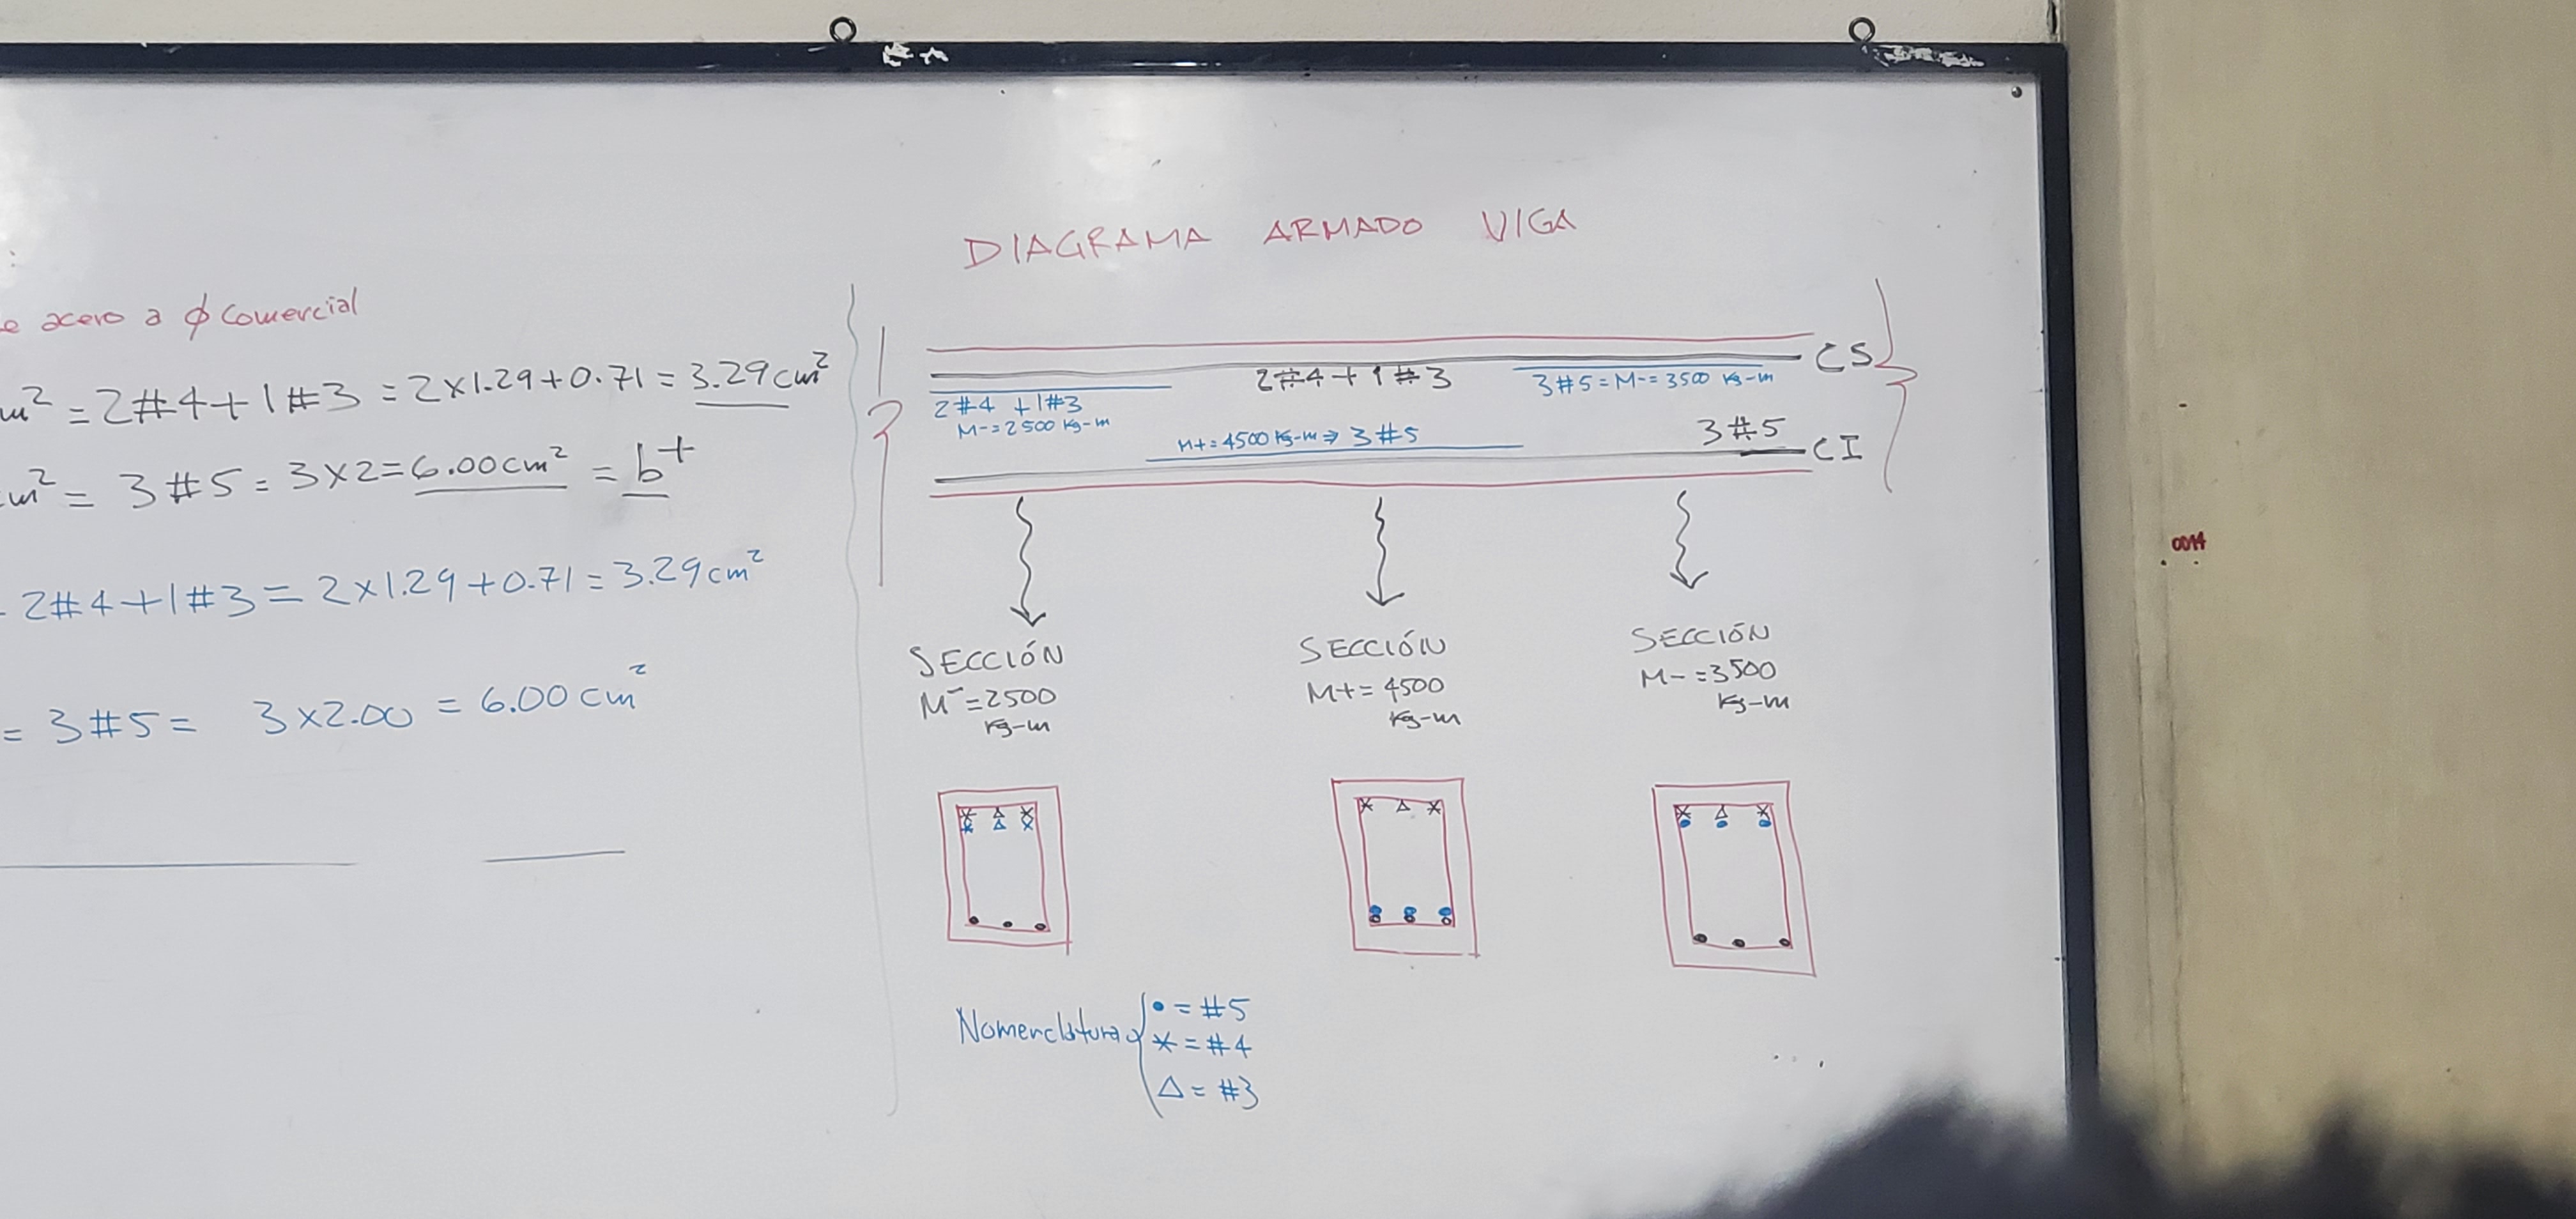 :
e acero a ϕ Comercial
m² = 2#4+1#3 = 2x1.29+0.71 = 3.29cm²
cm² = 3#5 = 3x2 = 6.00cm² = b+
2#4+1#3 = 2x1.29+0.71 = 3.29cm²
= 3#5 = 3x2.00 = 6.00cm²
DIAGRAMA ARMADO VIGA
CS
2#4+1#3
3#5=M-=3500 Kg-m
2#4 +1#3
M-=2500 Kg-m
M+=4500 Kg-m ⇒ 3#5
3#5
CI
SECCIÓN
M-=2500
Kg-m
SECCIÓN
M+=4500
Kg-m
SECCIÓN
M-=3500
Kg-m
Nomenclatura
• = #5
* = #4
Δ = #3
0014